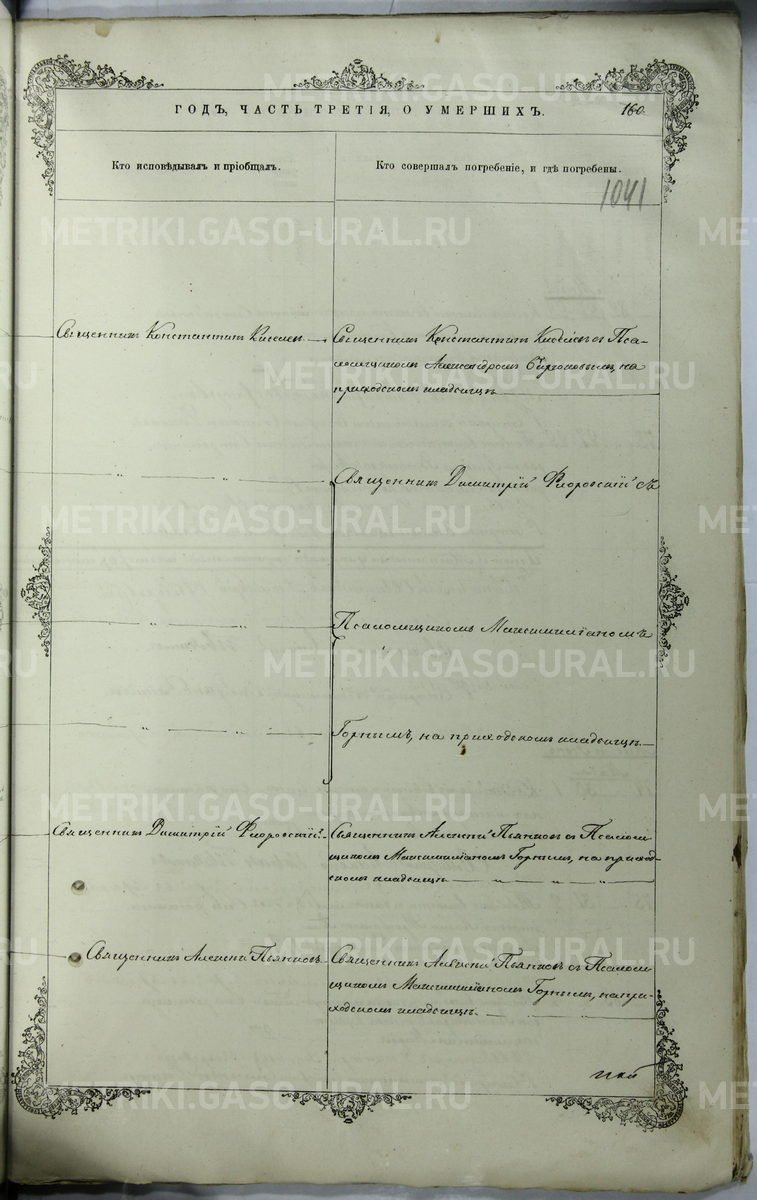 ГОДЪ, ЧАСТЬ ТРЕТІЯ, О УМЕРШИХЪ.
160
Кто исповѣдывалъ и пріобщалъ.
Кто совершалъ погребеніе, и гдѣ погребены.
1041
Священникъ Константинъ Киселев
Священникъ Константинъ Киселевъ съ Пса-
ломщикомъ Александромъ на
приходскомъ кладбищѣ
Священникъ Димитрій Флоровскій съ
Псаломщикомъ Максимиліаномъ
Горнымъ, на приходскомъ кладбищѣ
Священникъ Димитрій Флоровскій
Священникъ Алексѣй Пьянковъ съ Псалом
щикомъ Максимиліаномъ Горнымъ, на приход-
скомъ кладбищѣ
Священникъ Алексѣй Пьянковъ
Священникъ Алексѣй Пьянковъ съ Псалом
щикомъ Максимиліаномъ Горнымъ, на при-
ходскомъ кладбищѣ
METRIKI.GASO-URAL.RU